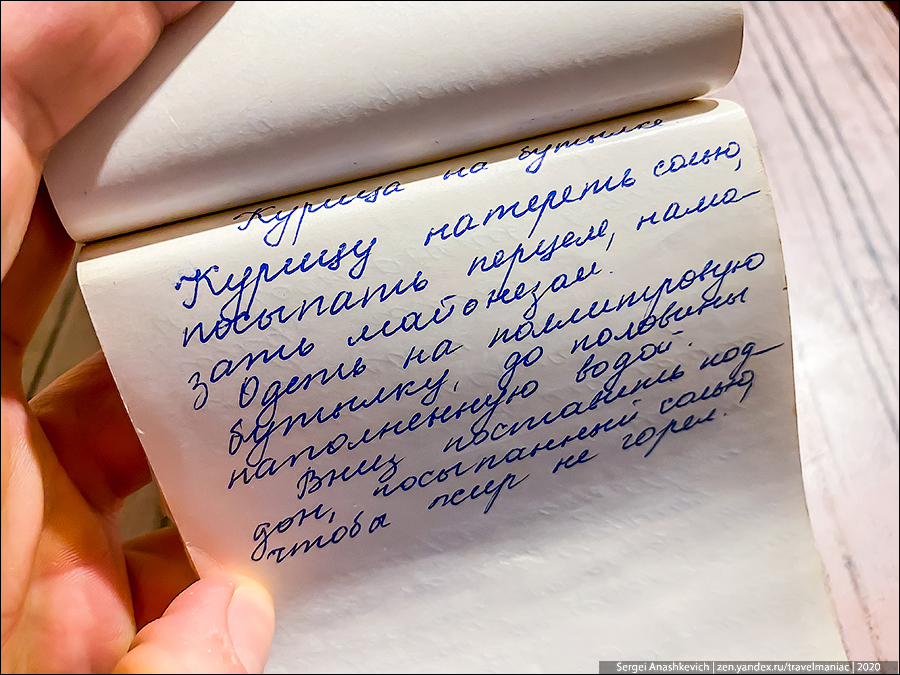 Курица на бутылке
Курицу натереть солью,
посыпать перцем, нама-
зать майонезом.
Одеть на поллитровую
бутылку, до половины
наполненную водой.
Вниз поставить под-
дон, посыпанный солью,
чтобы жир не горел.
Sergei Anashkevich | zen.yandex.ru/travelmaniac | 2020